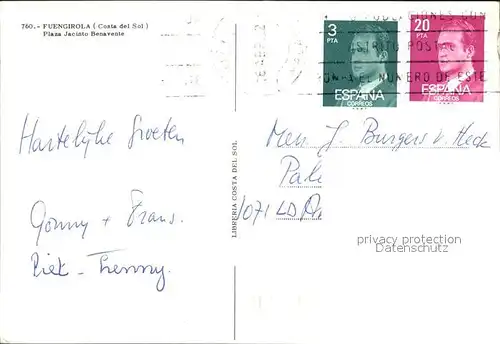 760.- FUENGIROLA (Costa del Sol)
Plaza Jacinto Benavente
3
PTA
ESPAÑA
CORREOS
20
PTA
ESPAÑA
CORREOS
CON
DISTRITO POSTAL
EL NUMERO DE ESTE
Hartelijke Groeten
Gonny + Frans.
Piet - Henny.
LIBRERIA COSTA DEL SOL
J. Burgers v. Heck
Pale
1071 LD
privacy protection
Datenschutz